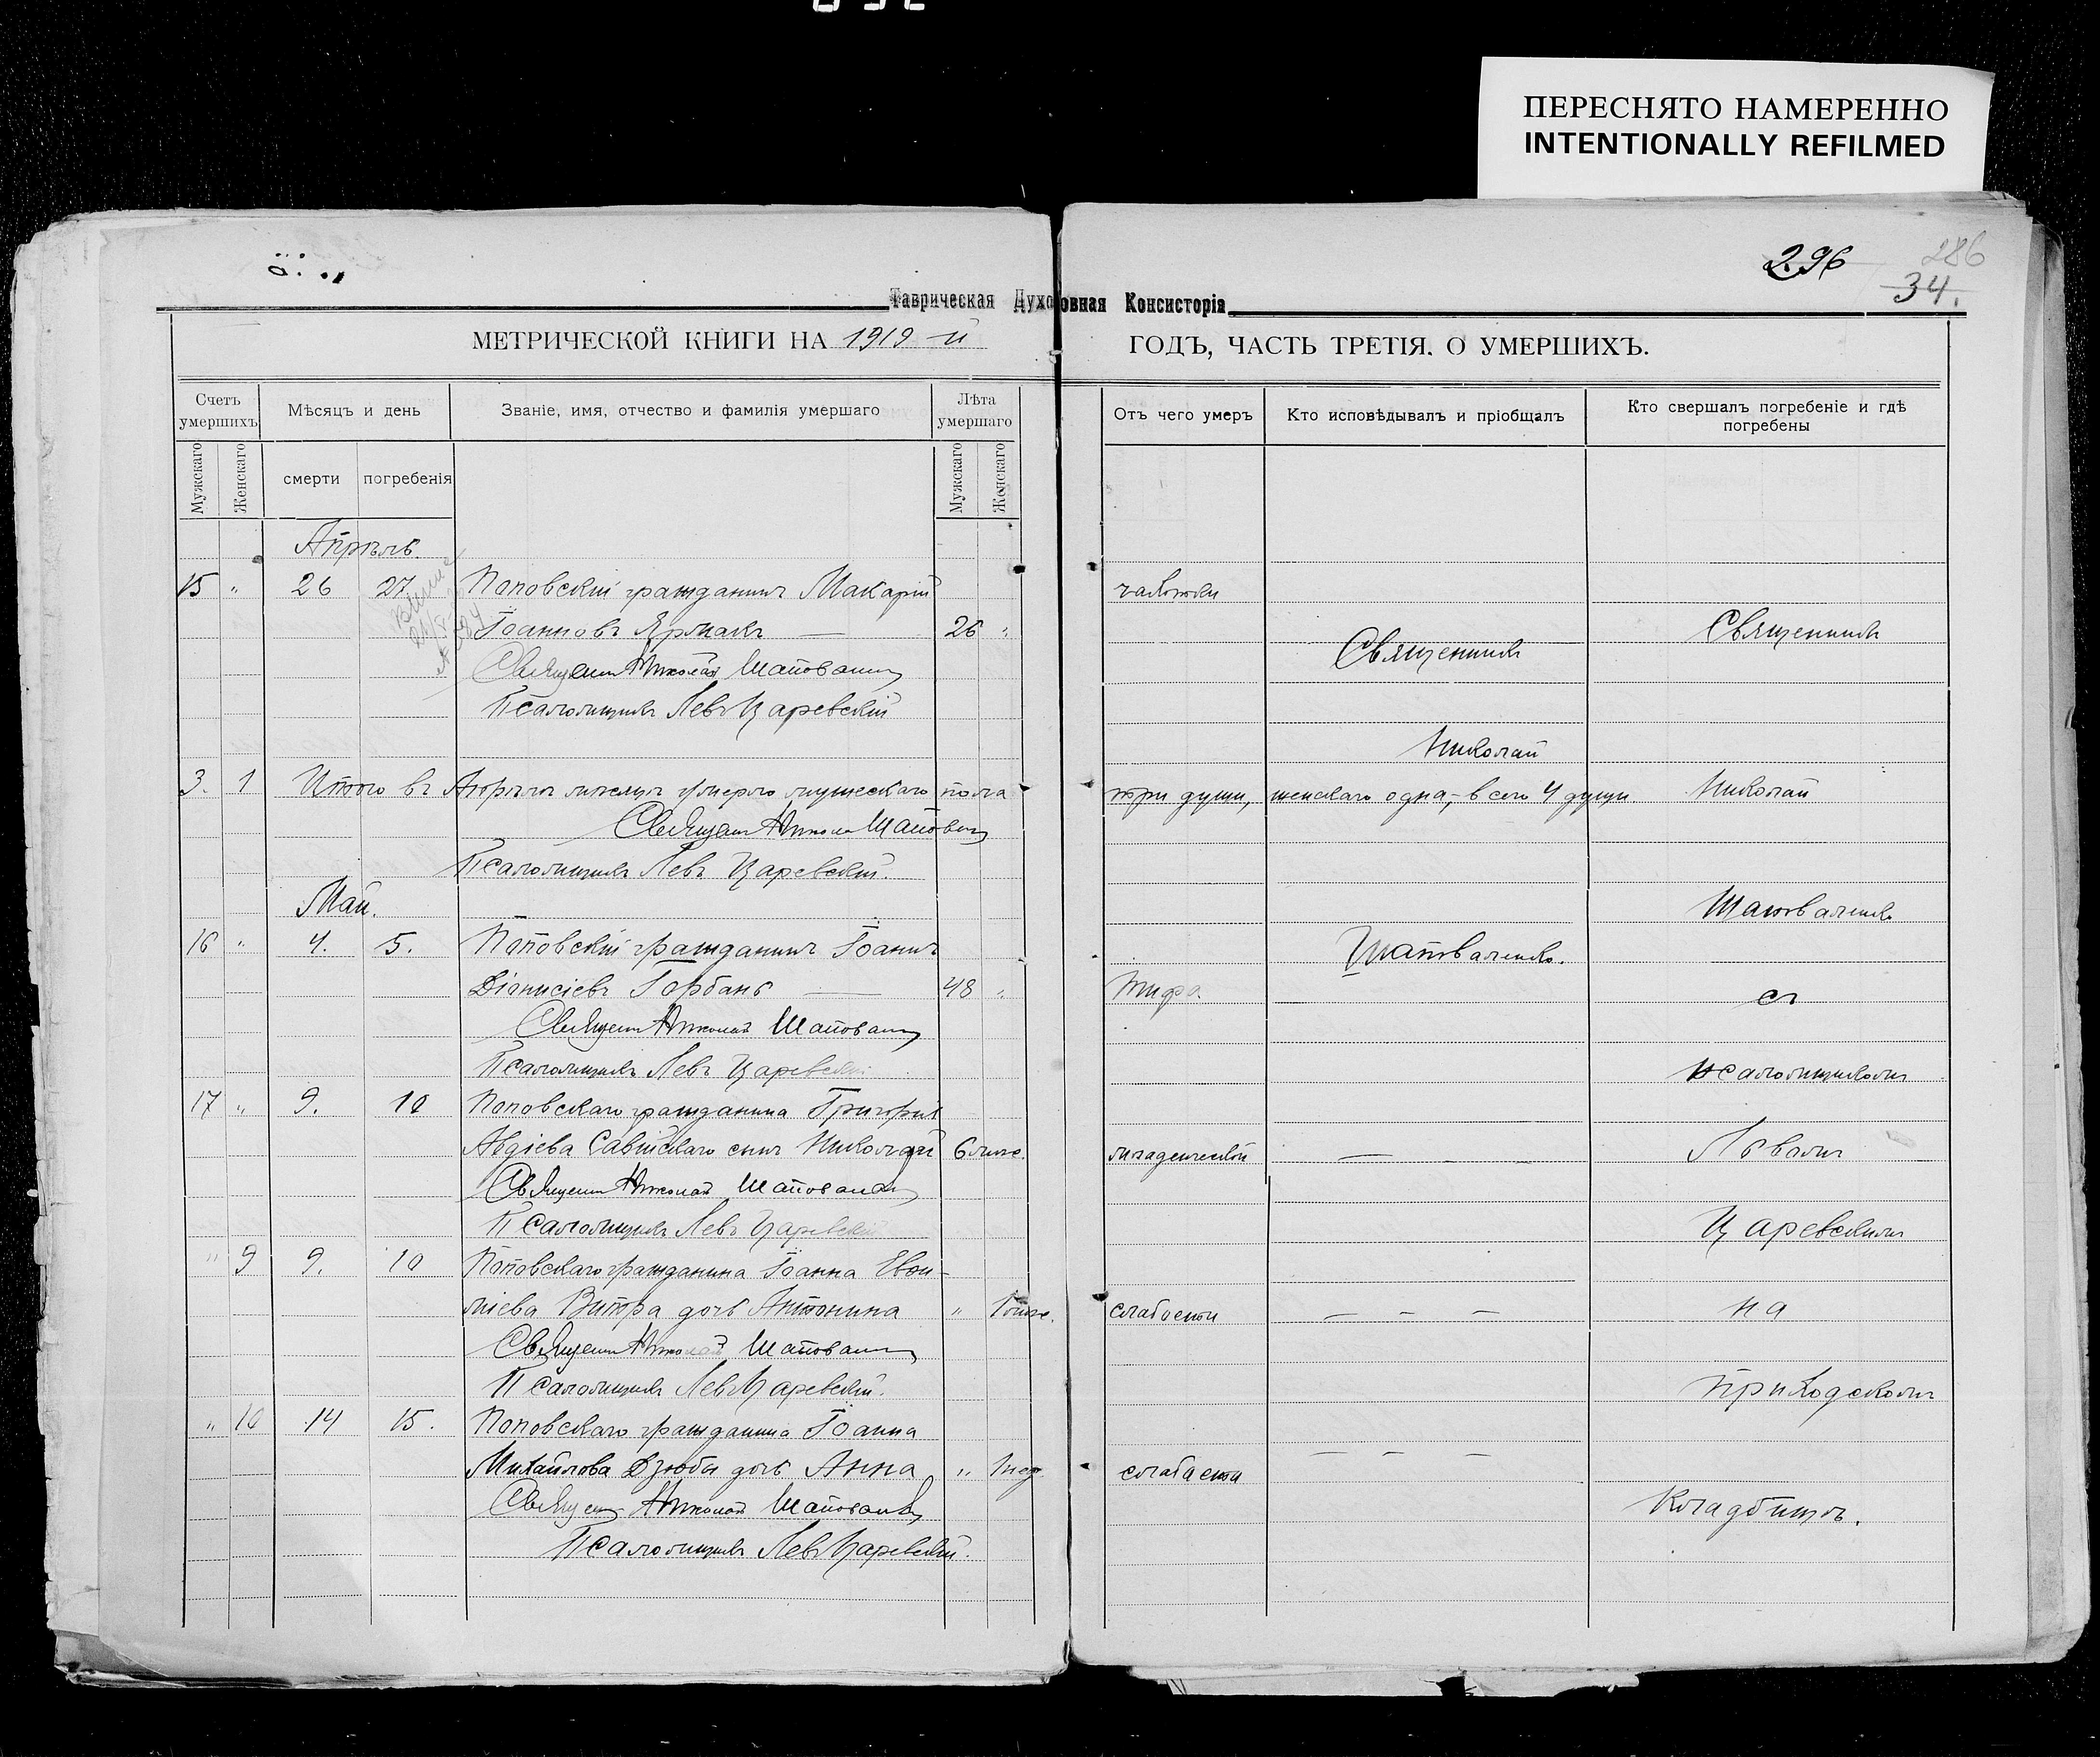 ПЕРЕСНЯТО НАМЕРЕННО
INTENTIONALLY REFILMED
296
286
34.
Таврическая Духовная Консисторія
МЕТРИЧЕСКОЙ КНИГИ НА 1919-й ГОДЪ, ЧАСТЬ ТРЕТІЯ. О УМЕРШИХЪ.
Счетъ умершихъ
Мѣсяцъ и день
Званіе, имя, отчество и фамилія умершаго
Лѣта умершаго
Отъ чего умеръ
Кто исповѣдывалъ и пріобщалъ
Кто свершалъ погребеніе и гдѣ погребены
Мужскаго
Женскаго
смерти
погребенія
Мужскаго
Женскаго
Апрѣль.
15 " 26 27 Поповскій гражданинъ Макарій чахотки
Іоанновъ Ярмакъ — 26 "
Священникъ Николай Шаповаленко
Псаломщикъ Левъ Царевскій
3. 1 Итого въ Апрѣлѣ мѣсяцѣ умерло мужескаго пола три души, женскаго одна, – всего 4 души
Священ Никол Шаповал
Псаломщикъ Левъ Царевскій.
Май.
16 " 4. 5. Поповскій гражданинъ Іоаннъ
Діонисіевъ Горбань — 48 " Тифа
Священ Николай Шаповал
Псаломщикъ Левъ Царевскій
17 " 9. 10 Поповскаго гражданина Григорія
Авдіева Савитскаго сынъ Николай 6 мѣс. младенческой — — —
Священ Николай Шаповал
Псаломщикъ Левъ Царевскій
" 9 9. 10 Поповскаго гражданина Іоанна
дочь Антонина " слабости — — —
Священ Николай Шаповал
Псаломщикъ Левъ Царевскій.
" 10 14 15. Поповскаго гражданина Іоанна
Михайлова Дзюбы дочь Анна " слабости — — —
Священ Николай Шаповал
Псаломщикъ Левъ Царевскій.
Священникъ
Николай
Шаповаленко.
Священникъ
Николай
Шаповаленко
съ
псаломщикомъ
Львомъ
Царевскимъ
на
приходскомъ
кладбищѣ.